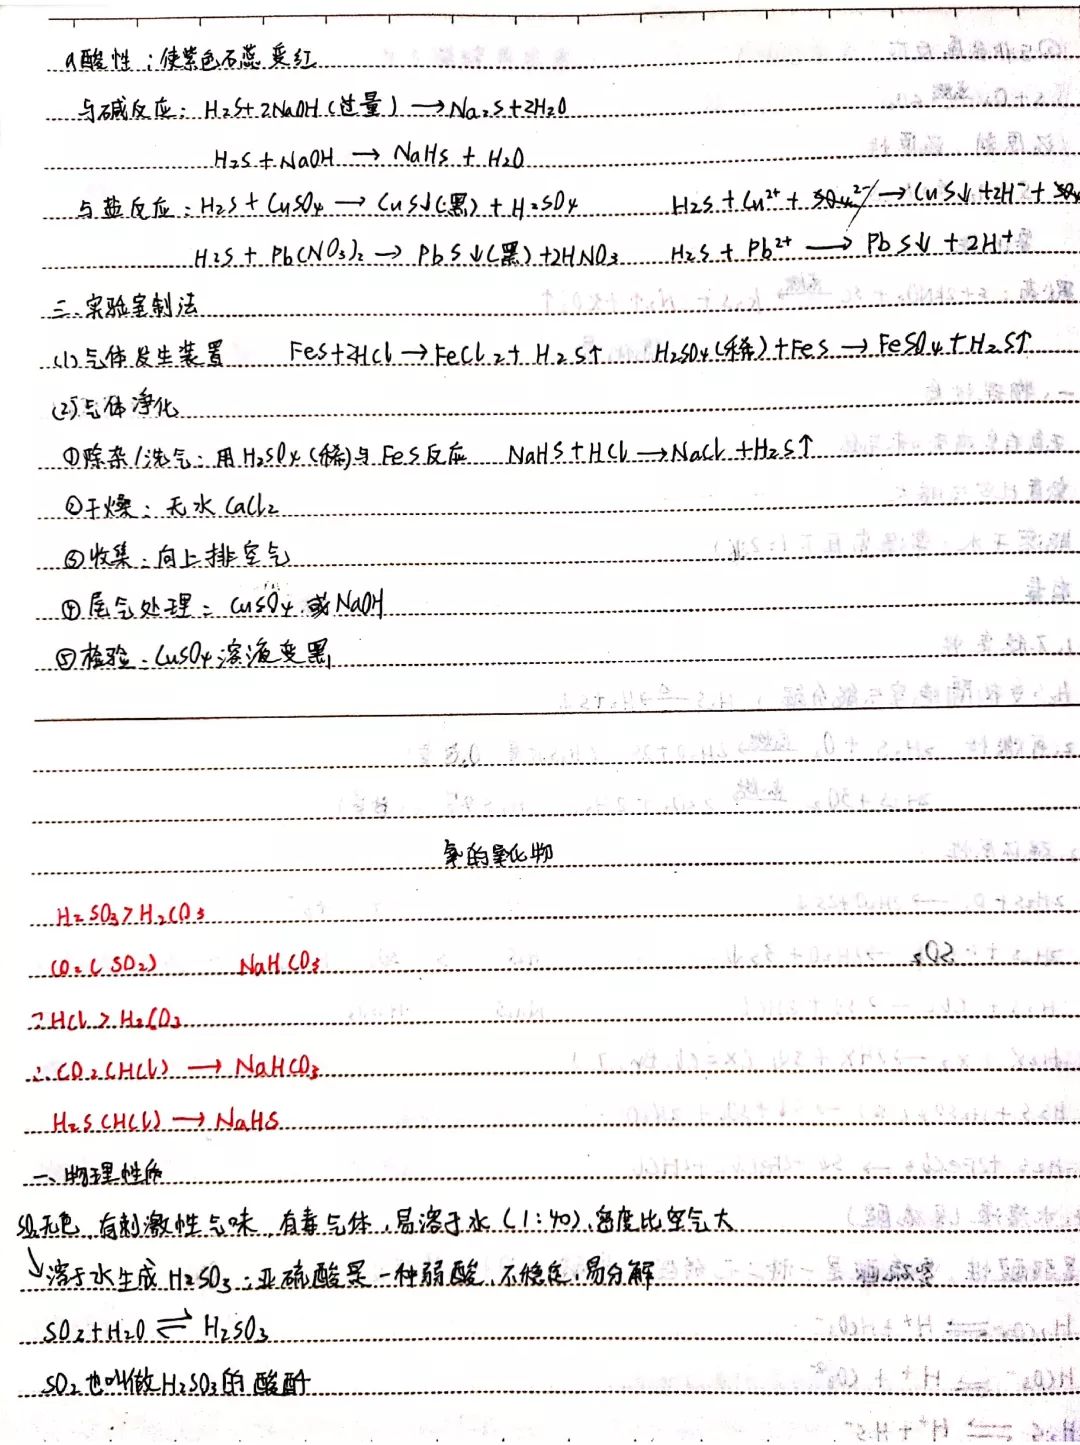 a酸性：使紫色石蕊变红
与碱反应：H₂S+2NaOH(过量)→Na₂S+2H₂O
H₂S+NaOH → NaHS + H₂O
与盐反应：H₂S + CuSO₄ → CuS↓(黑)+H₂SO₄ H₂S+Cu²⁺+SO₄²⁻→CuS↓+2H⁺+SO₄
H₂S + Pb(NO₃)₂ → PbS↓(黑)+2HNO₃ H₂S + Pb²⁺ → PbS↓ + 2H⁺
三.实验室制法
(1)气体发生装置 FeS+2HCl→FeCl₂+ H₂S↑ H₂SO₄(稀)+FeS → FeSO₄+H₂S↑
(2)气体净化
①除杂/洗气：用H₂SO₄(稀)与FeS反应 NaHS+HCl→NaCl+H₂S↑
②干燥：无水CaCl₂
③收集：向上排空气
④尾气处理：CuSO₄或NaOH
⑤检验：CuSO₄溶液变黑
的氧化物
H₂SO₃>H₂CO₃
CO₂(SO₂) NaHCO₃
∵HCl>H₂CO₃
∴CO₂(HCl) → NaHCO₃
H₂S(HCl) → NaHS
一、物理性质
SO₂无色，有刺激性气味，有毒气体，易溶于水(1:40)，密度比空气大
↘溶于水生成H₂SO₃：亚硫酸是一种弱酸，不稳定，易分解
SO₂+H₂O⇌H₂SO₃
SO₂也叫做H₂SO₃的酸酐